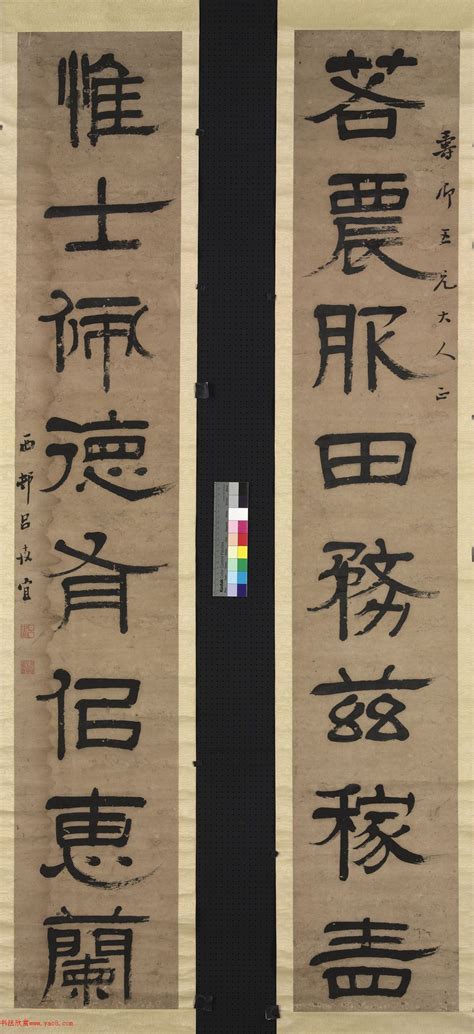 壽卿五兄大人正
若農服田務茲稼嗇
惟士佩德有佀惠蘭
西邨呂世宜
书法欣赏www.yac8.com